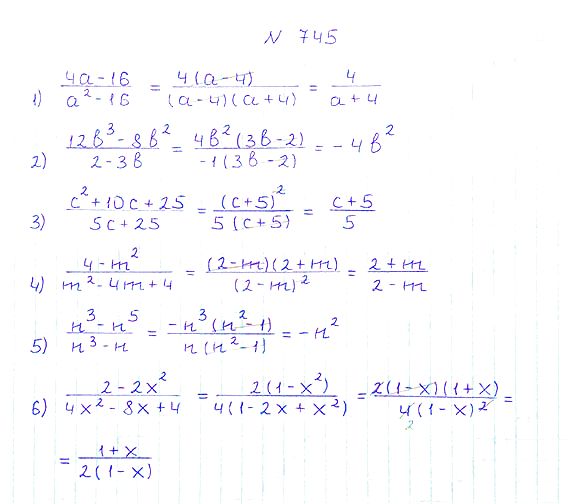 N 745
1) (4a-16)/(a²-16) = (4(a-4))/((a-4)(a+4)) = 4/(a+4)
2) (12b³-8b²)/(2-3b) = (4b²(3b-2))/(-1(3b-2)) = -4b²
3) (c²+10c+25)/(5c+25) = (c+5)²/(5(c+5)) = (c+5)/5
4) (4-m²)/(m²-4m+4) = ((2-m)(2+m))/(2-m)² = (2+m)/(2-m)
5) (n³-n⁵)/(n³-n) = (-n³(n²-1))/(n(n²-1)) = -n²
6) (2-2x²)/(4x²-8x+4) = (2(1-x²))/(4(1-2x+x²)) = (2(1-x)(1+x))/(4(1-x)²) =
2
= (1+x)/(2(1-x))